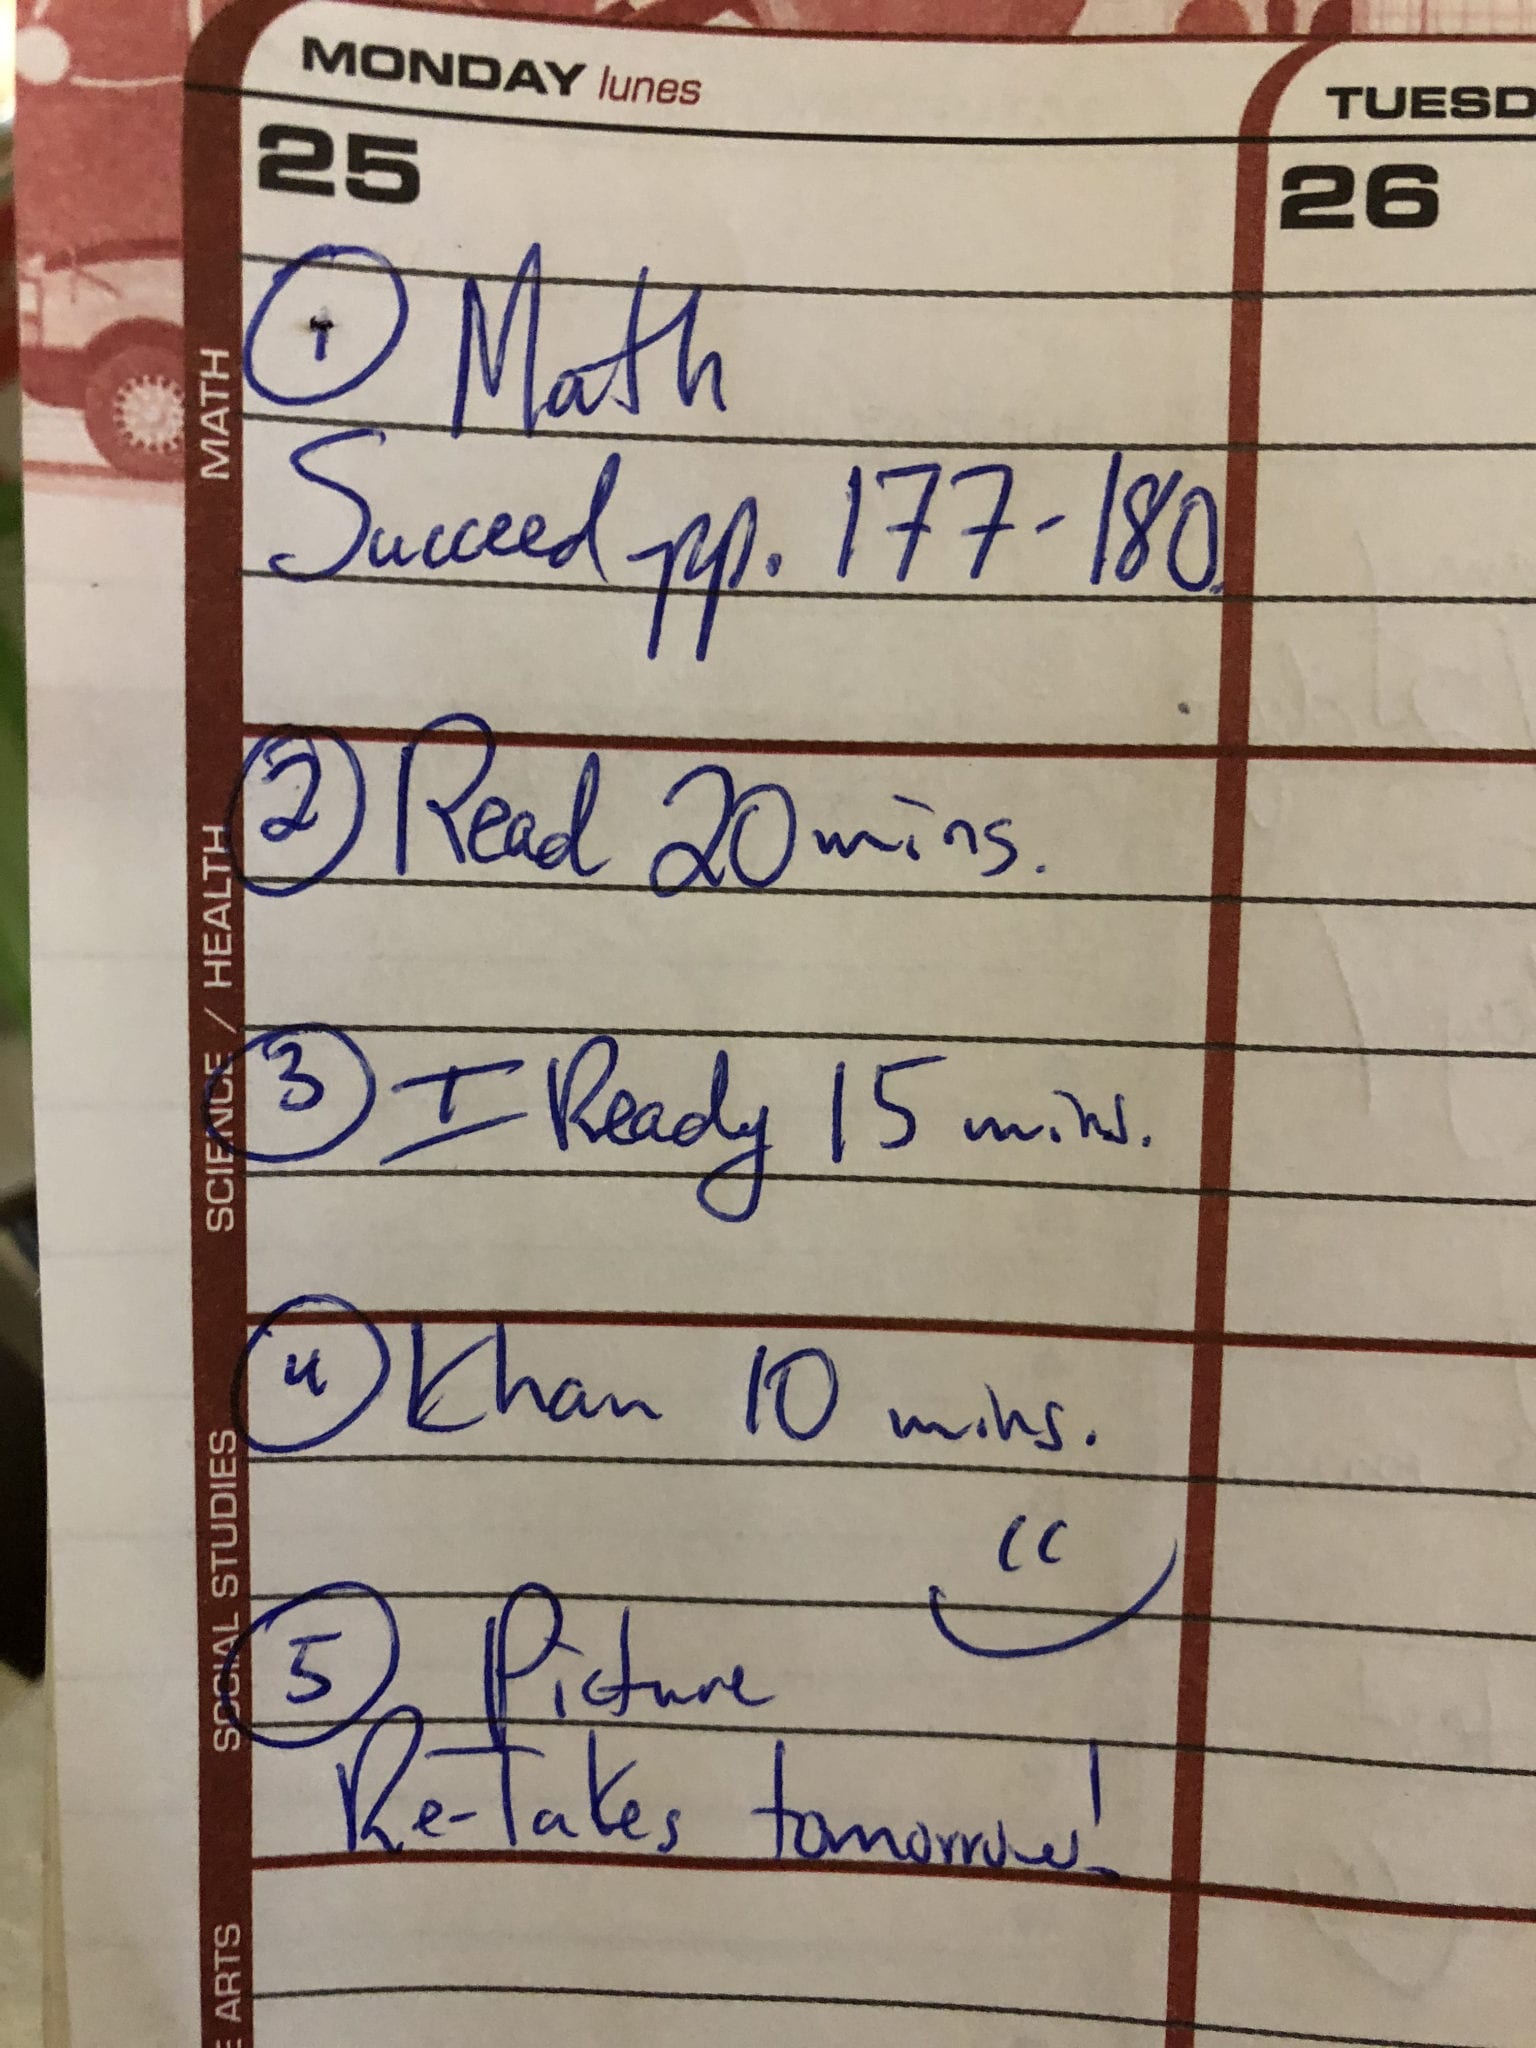 MONDAY lunes
TUESD
25
26
MATH
1 Math
Succeed pp. 177-180.
SCIENCE / HEALTH
2 Read 20 mins.
3 I Ready 15 mins.
SOCIAL STUDIES
4 Khan 10 mins.
5 Picture
Re-Takes tomorrow!
E ARTS